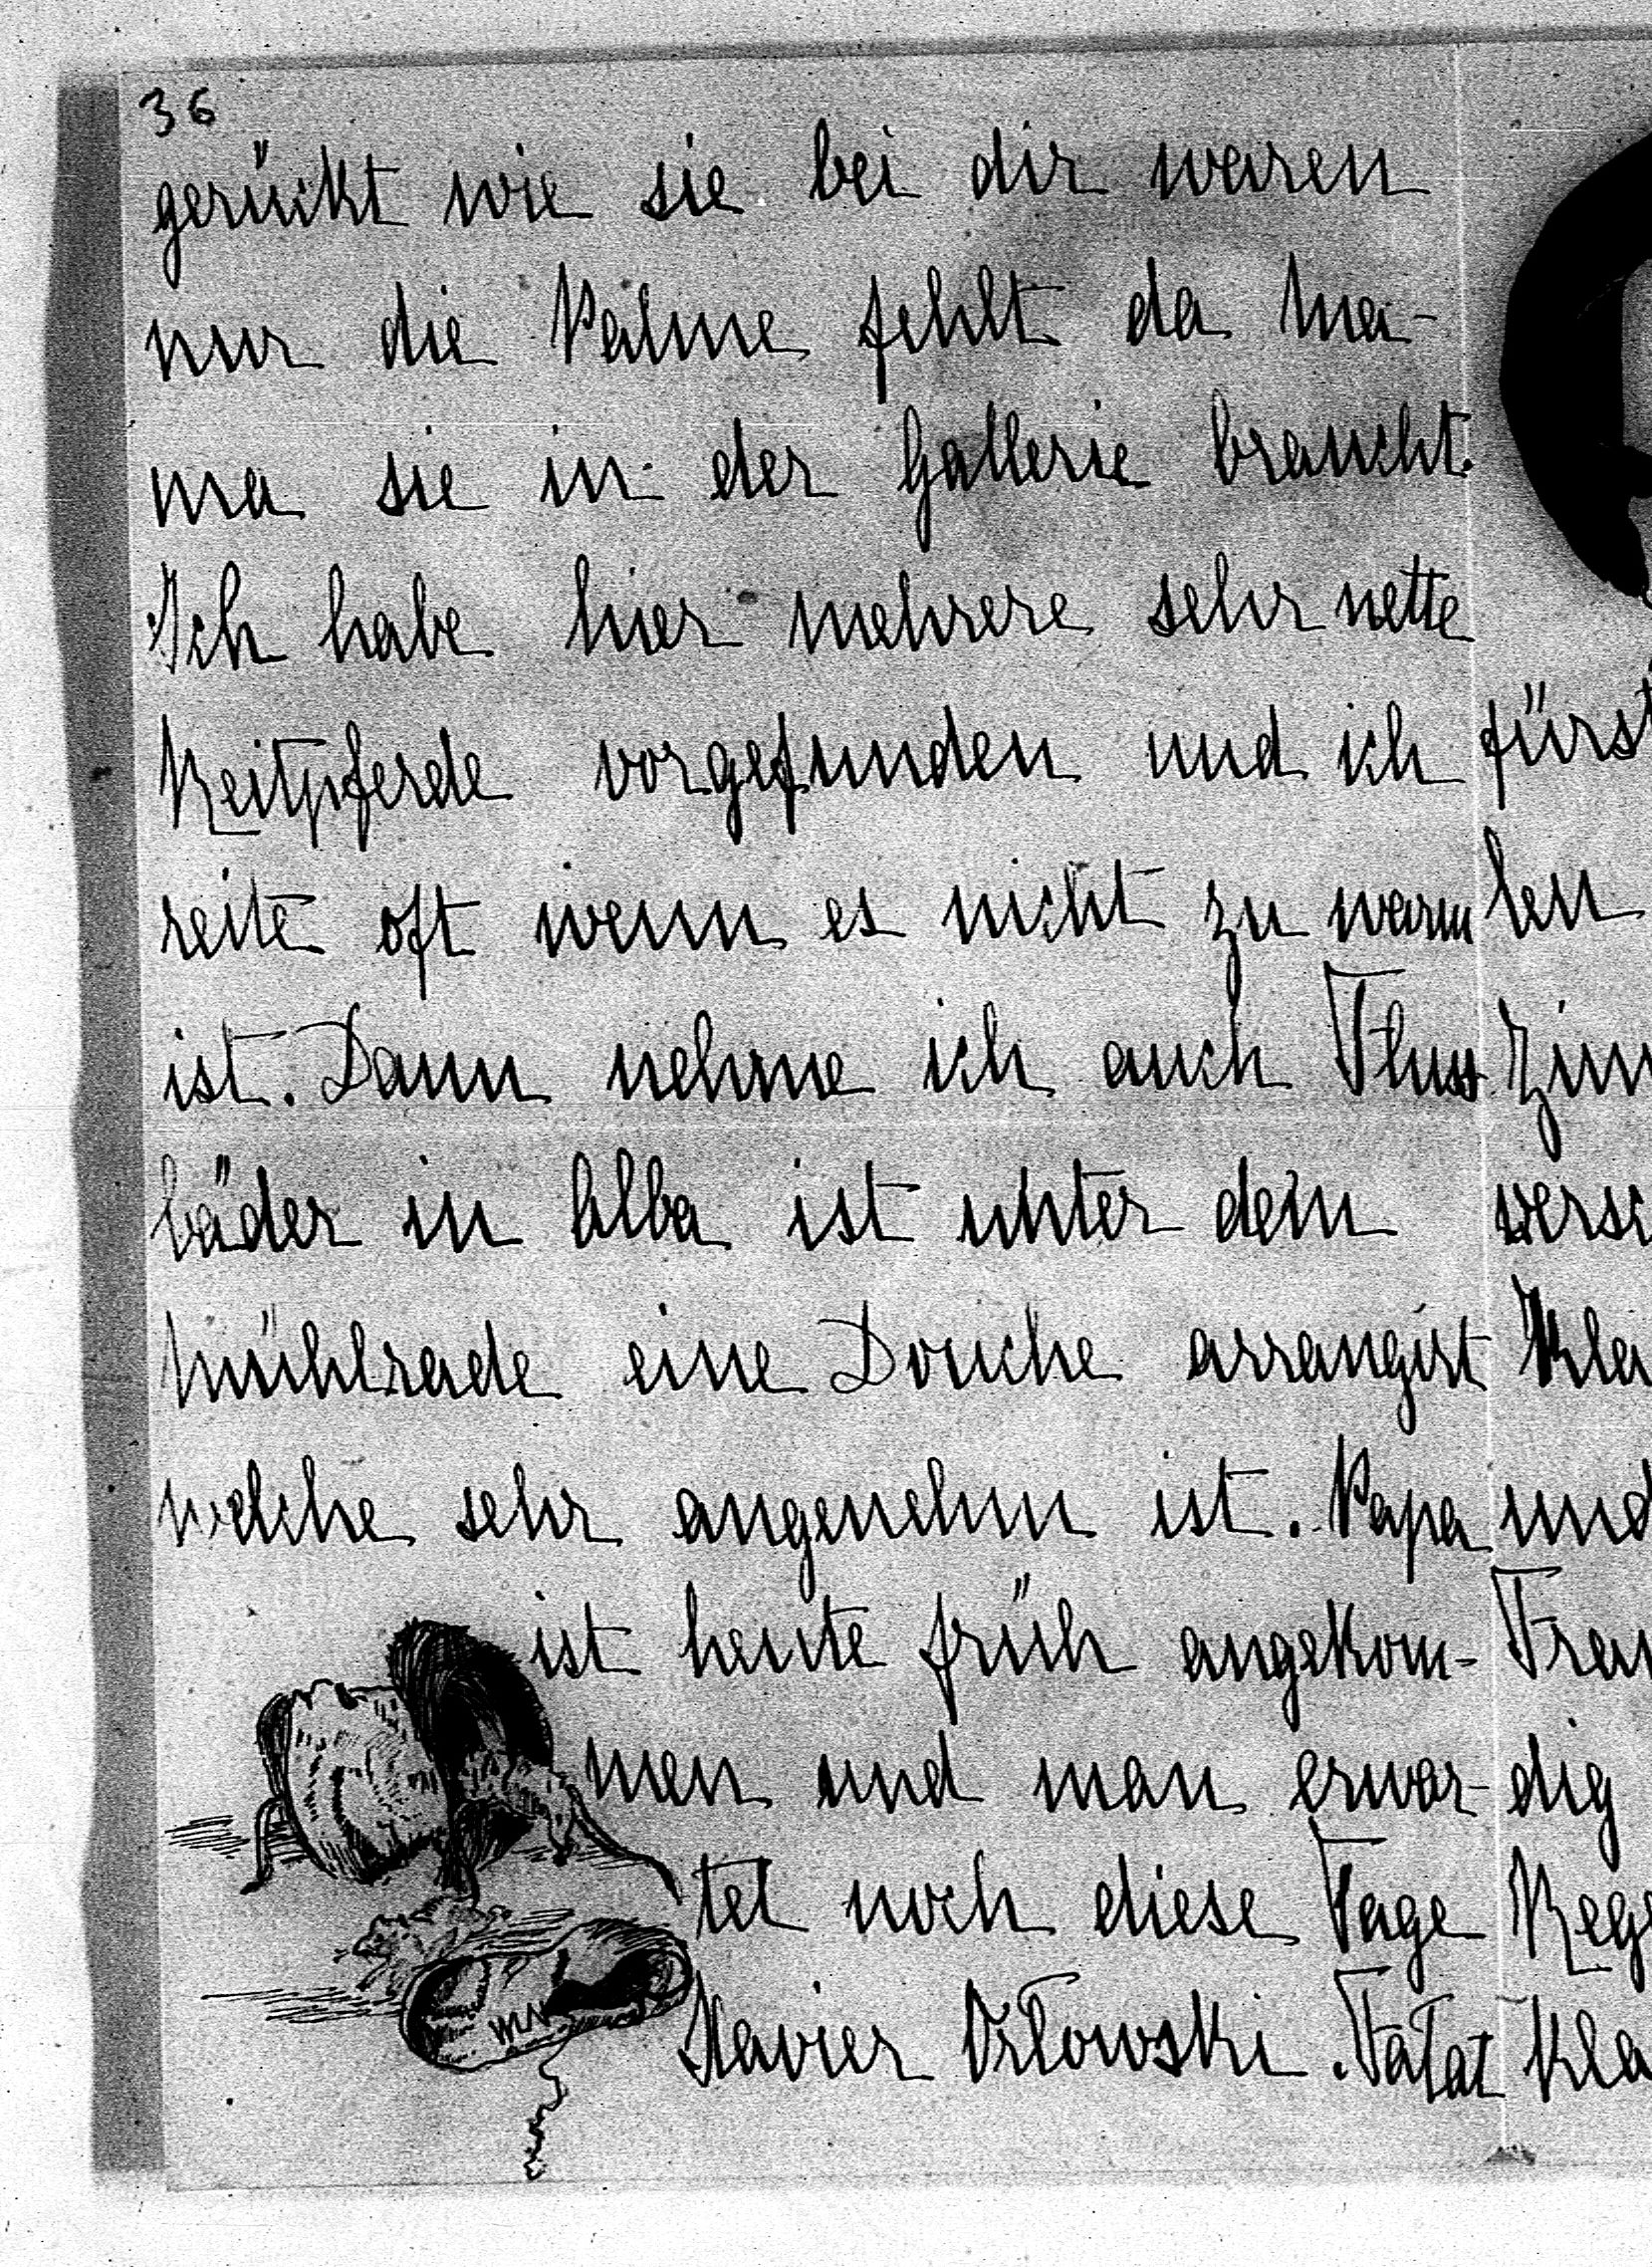 36
gerückt wie sie bei dir waren
nur die Palme fehlt da Ma-
ma sie in der Gallerie braucht.
Ich habe hier mehrere sehr nette
Reitpferde vorgefunden und ich
reite oft wenn es nicht zu warm
ist. Dann nehme ich auch Fluss
bäder in Alba ist unter dem
Mühlrade eine Douche arrangirt
welche sehr angenehm ist. Papa
ist heute früh angekom-
men und man erwar-
tet noch diese Tage
Xavier Orłowski. Tatar
fürst
len
Zim
versc
Kla
und
Frau
dig
Reg
Kla